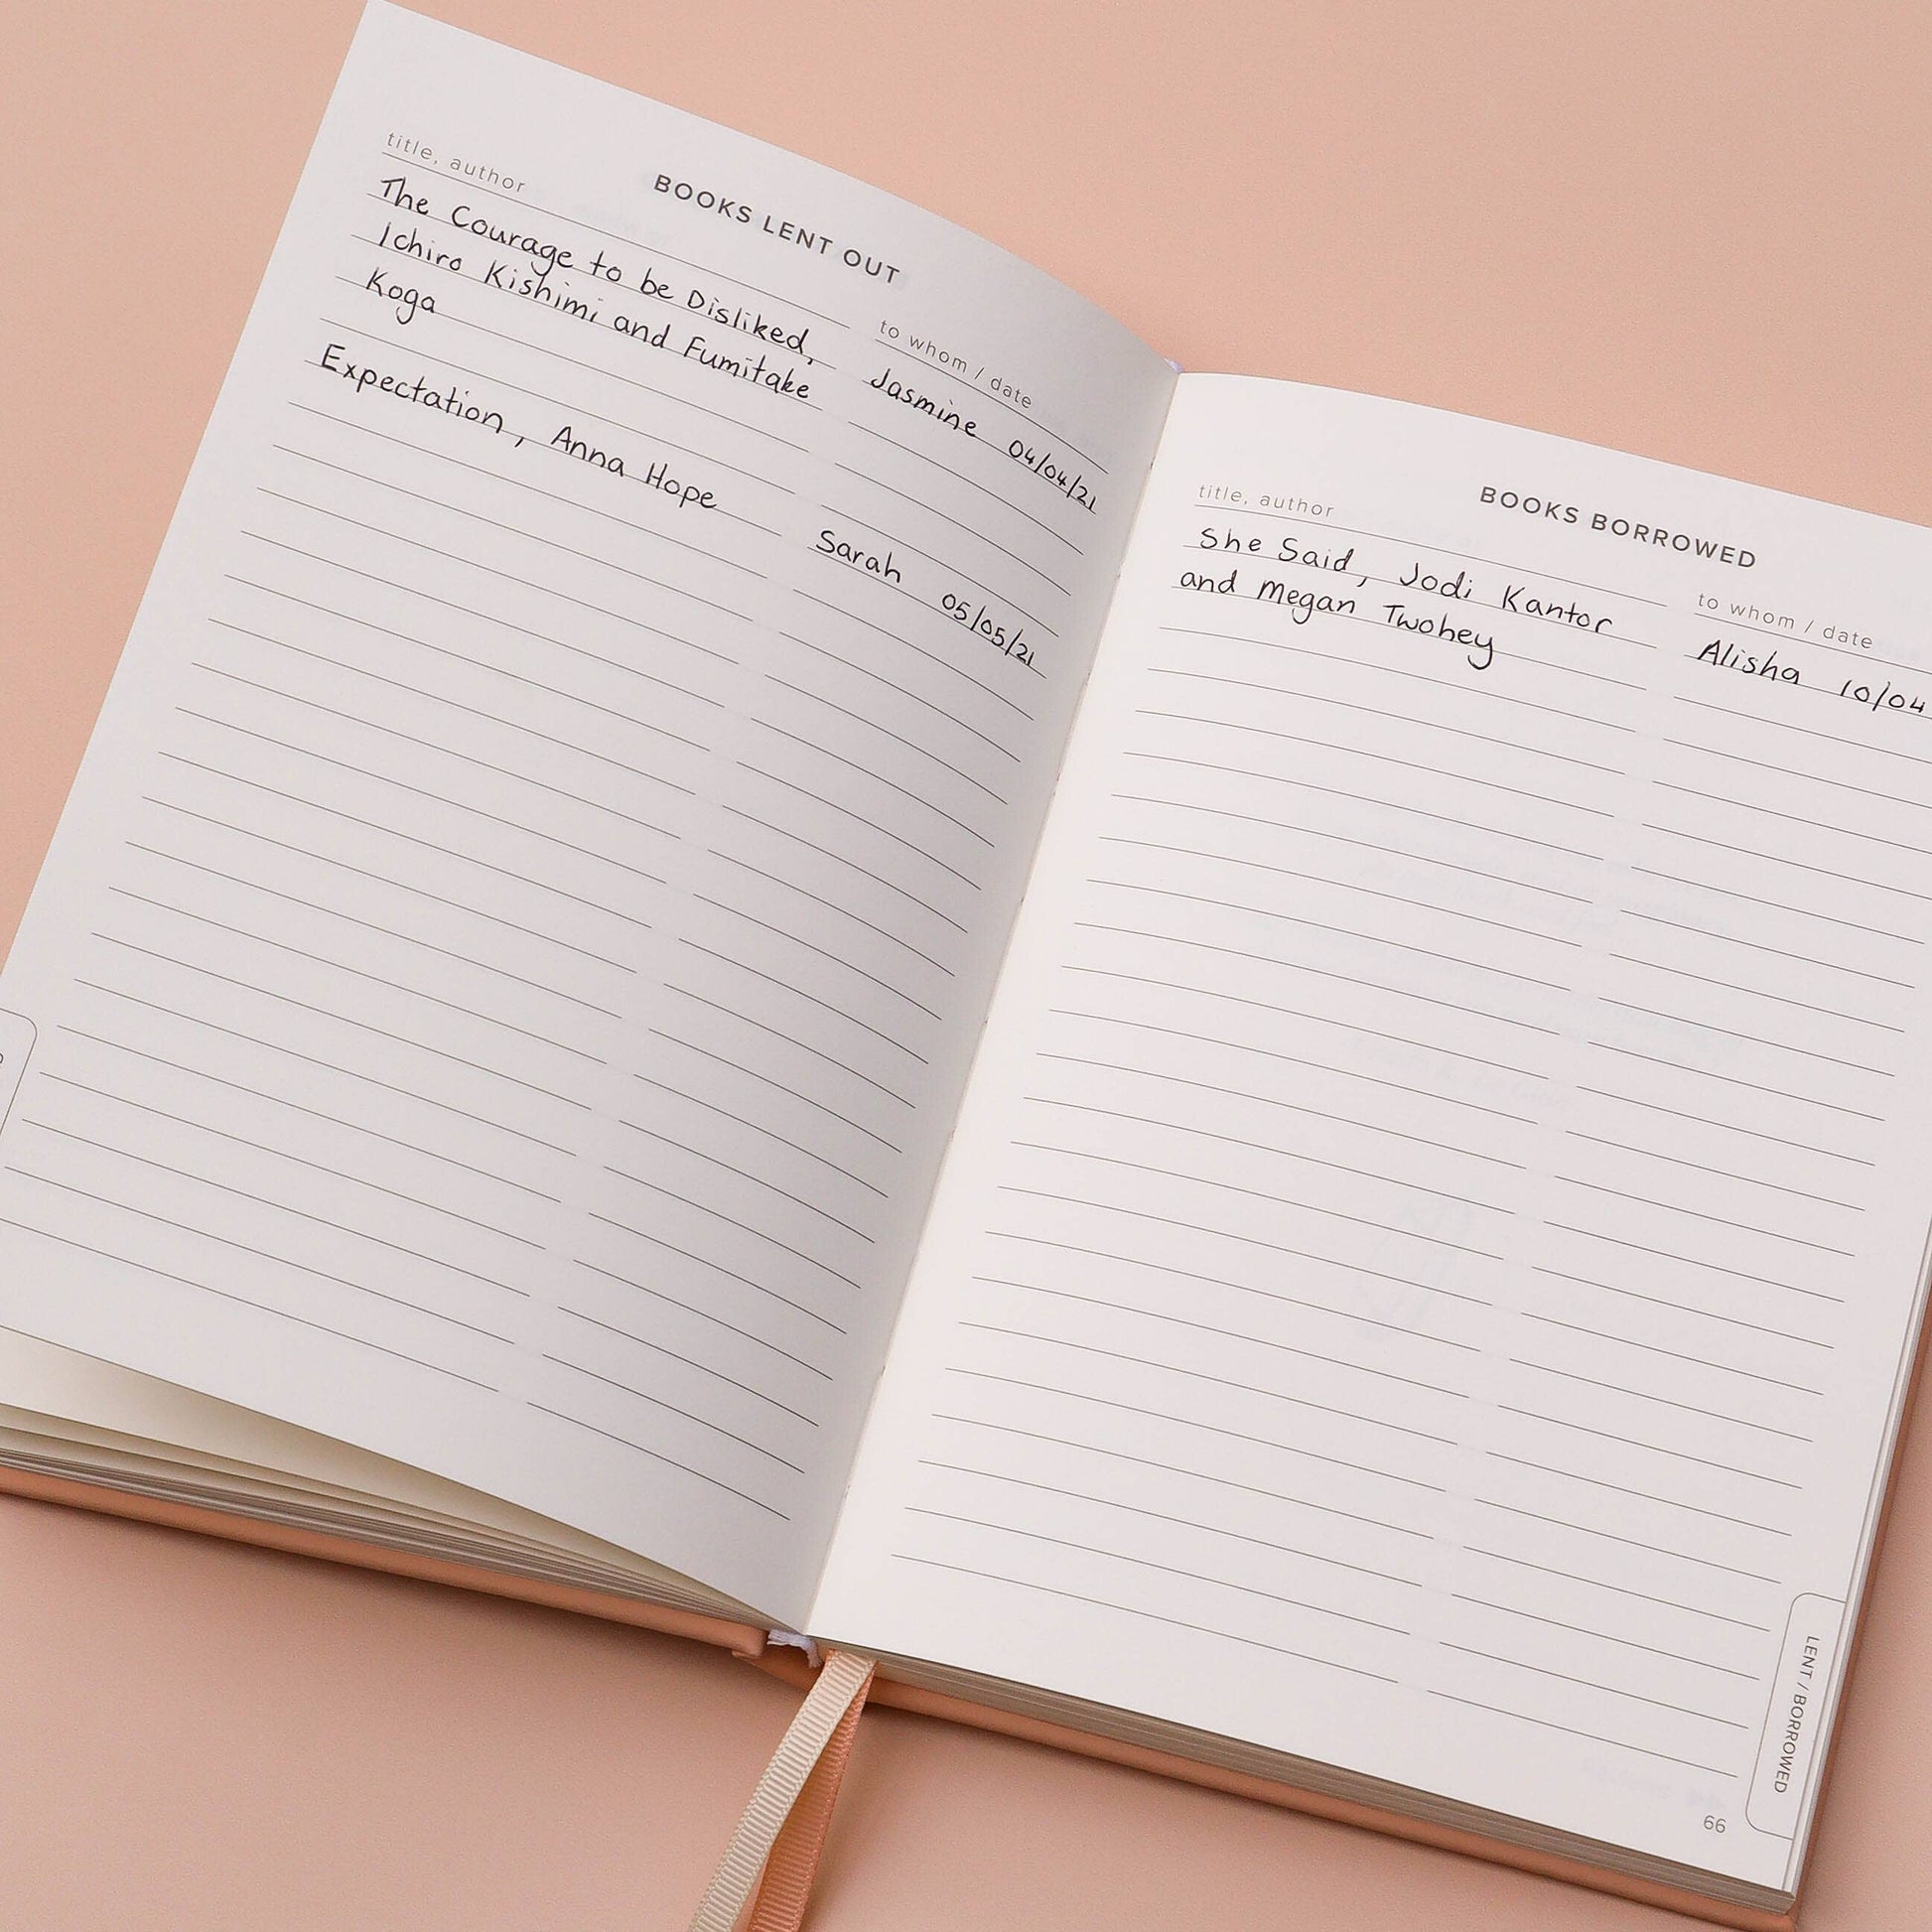 BOOKS LENT OUT
title, author
to whom / date
The Courage to be Disliked,
Jasmine 04/04/21
Ichiro Kishimi and Fumitake
Koga
Expectation, Anna Hope
Sarah 05/05/21
BOOKS BORROWED
title, author
to whom / date
She Said, Jodi Kantor
Alisha 10/04
and Megan Twohey
LENT / BORROWED
66